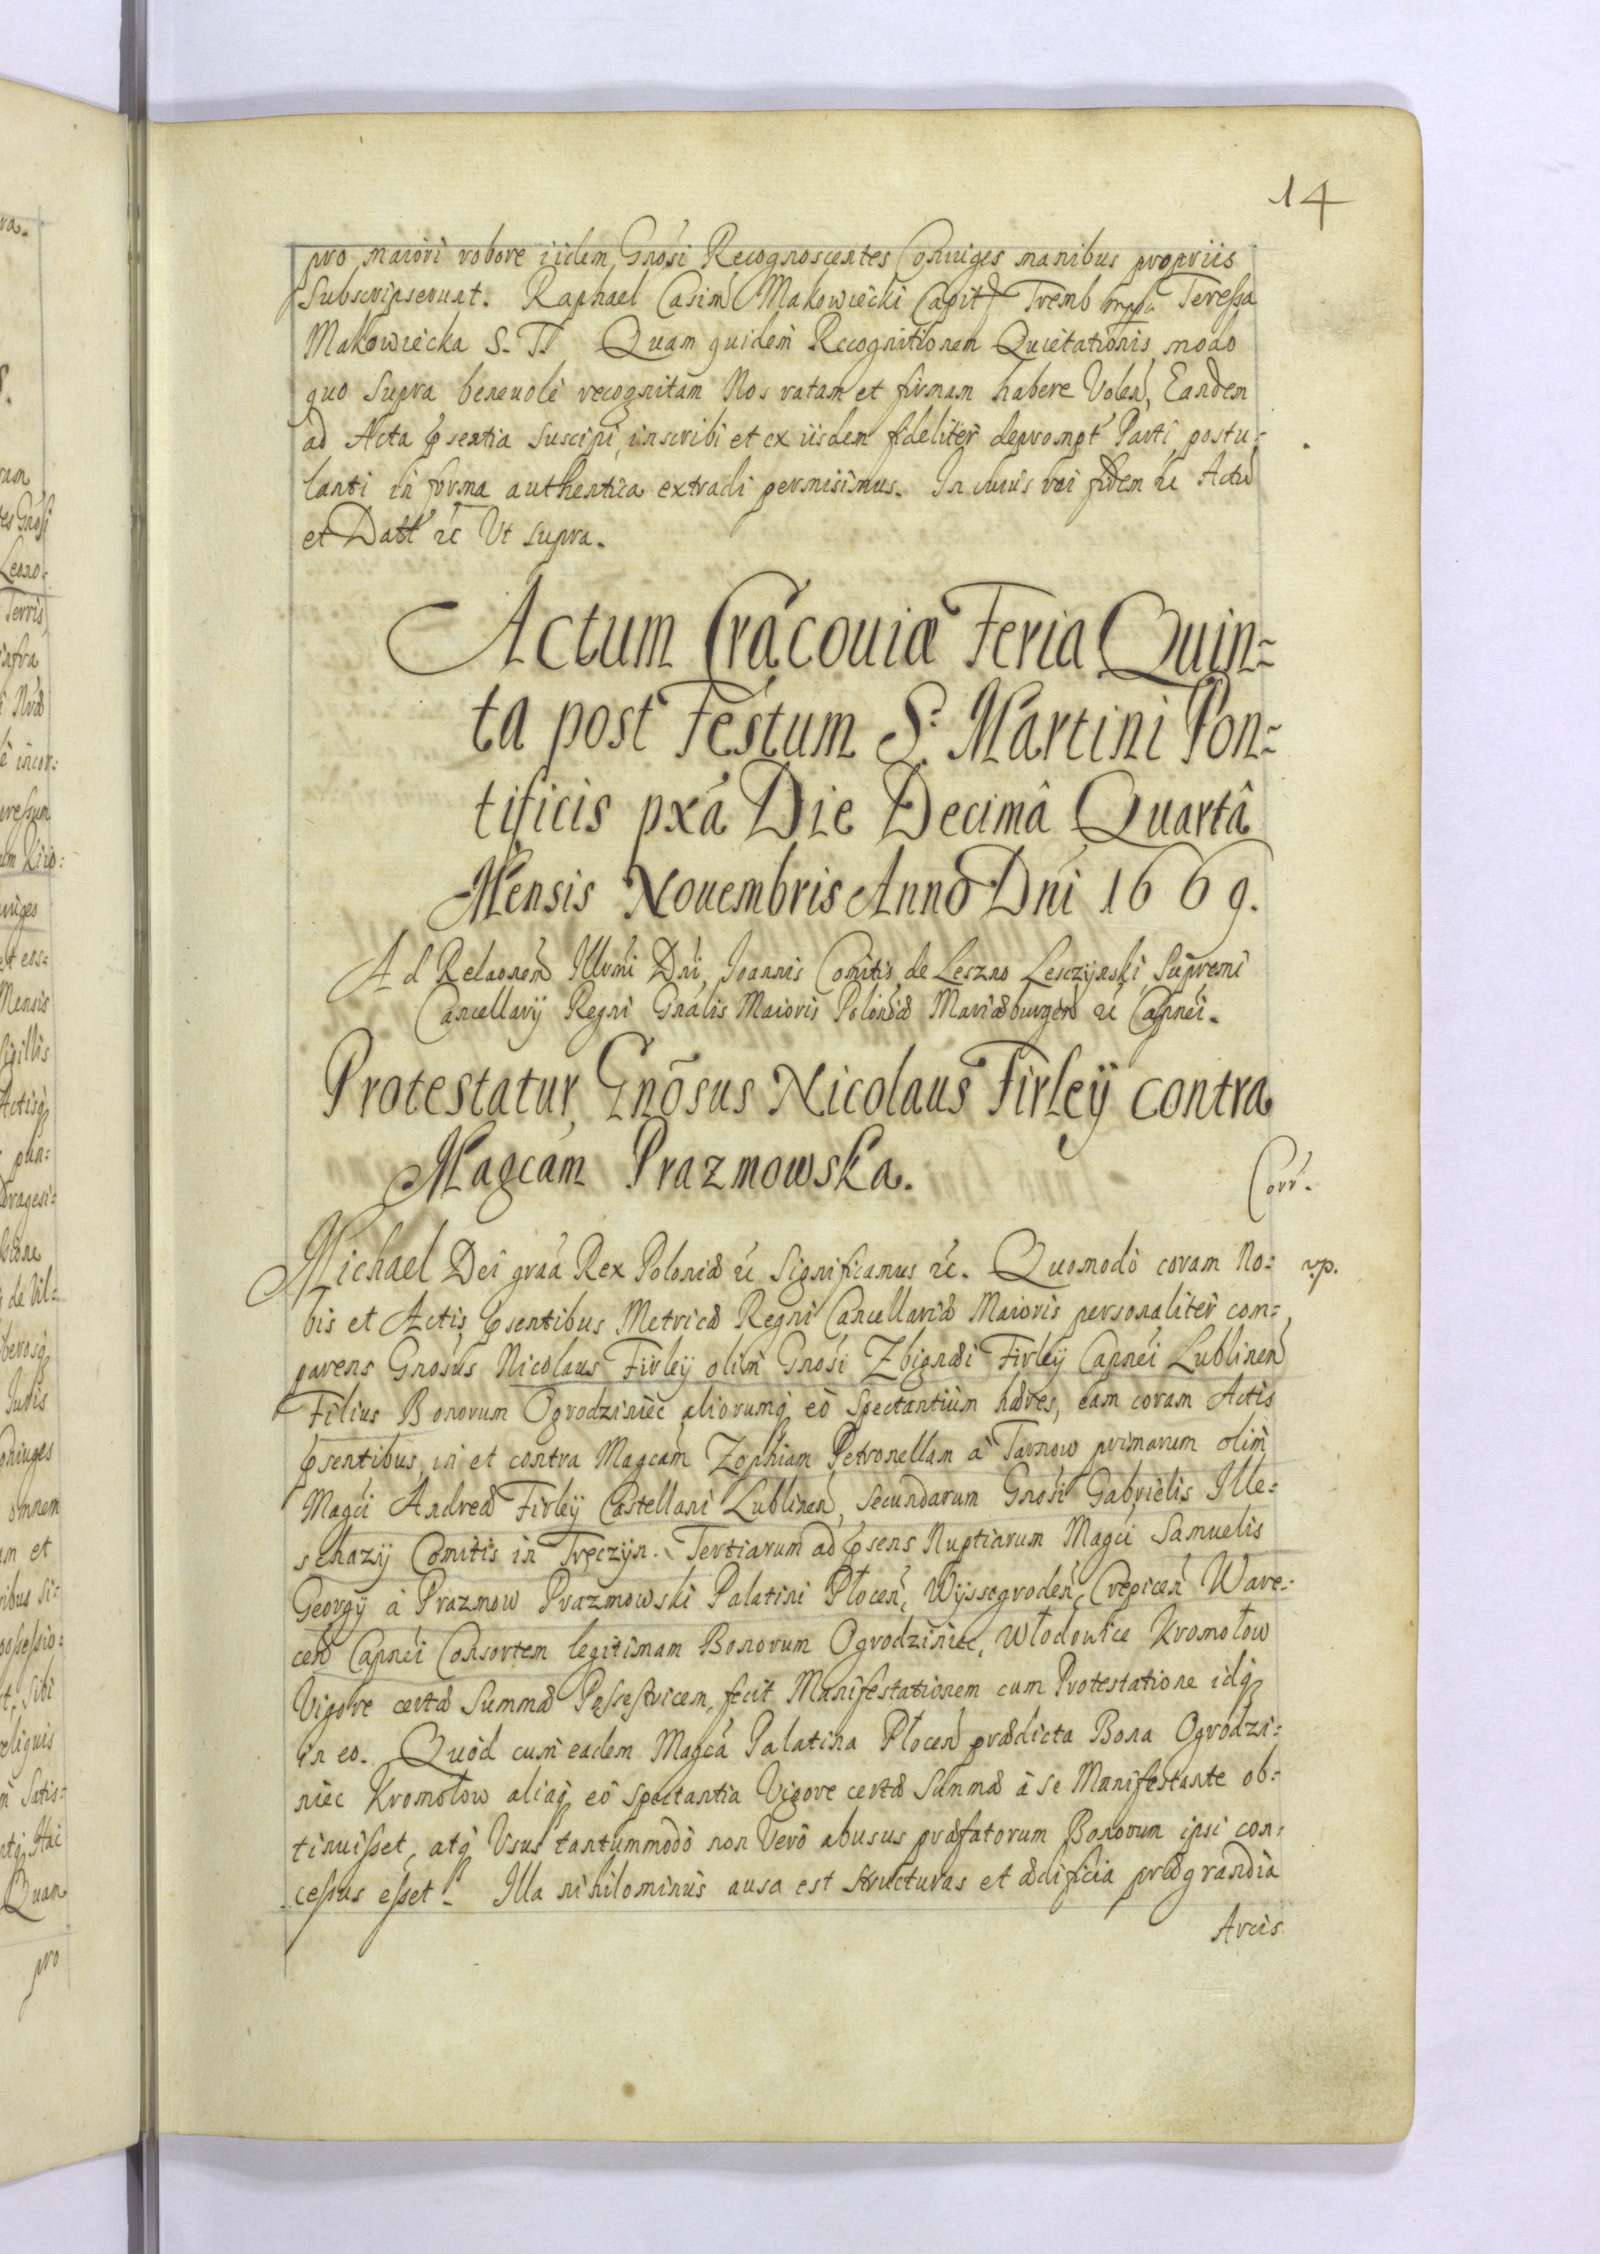 14
pro maiori robore iidem Gnosi Recognoscentes Coniuges manibus propriis
Subscripserunt. Raphael Casim Makowiecki Capit Tremb mpp Teressa
Makowiecka S. T. Quam quidem Recognitionem Quietationis modo
quo Supra beneuole recognitam Nos ratam et firmam habere Volen, Eandem
ad Acta Psentia suscipi, inscribi et ex iisdem fideliter deprompt Parti postu:
lanti in forma authentica extradi permisimus. In cuius rei fidem &c Actu
et Datt &c Ut supra.
Actum Cracouiæ Feria Quin:
ta post Festum S. Martini Pon:
tificis pxa Die Decimâ Quartâ
Mensis Nouembris Anno Dni 1669.
Ad Relaonem Illmi Dni, Joannis Comitis de Leszno Lesczynski, Supremi
Cancellarij Regni Gnalis Maioris Poloniæ Mariæburgen &c Capnei.
Protestatur, Gnõsus Nicolaus Firleÿ contra
Magcam Prazmowska.
Corr.
Michael Dei graa Rex Poloniæ &c Significamus &c. Quomodo coram No:
vp.
bis et Actis Psentibus Metricæ Regni Cancellariæ Maioris personaliter com:
parens Gnosus Nicolaus Firleÿ olim Gnosi Zbignæi Firleÿ Capnei Lublinen
Filius Bonorum Ogrodziniec aliorumq eo Spectantium hæres, eam coram Actis
Psentibus, in et contra Magcam Zophiam Petronellam a Tarnow primarum olim
Magci Andreæ Firleÿ Castellani Lublinen, secundarum Gnosi Gabrielis Ille:
schazÿ Comitis in Tręczyn. Tertiarum ad Psens Nuptiarum Magci Samuelis
Georgÿ à Prazmow Prazmowski Palatini Płocen, Wÿssegroden, Crepicen Ware:
cen Capnei Consortem legitimam Bonorum Ogrodziniec, Włodowice Kromołow
Vigore certæ Summæ Possestricem, fecit Manifestationem cum Protestatione idq
in eo. Quod cum eadem Magca Palatina Płocen prædicta Bona Ogrodzi:
niec Kromołow aliaq eo spectantia Vigore certæ Summæ à se Manifestante ob:
tinuisset, atq Usus tantummodo non Vero abusus præfatorum Bonorum ipsi con:
cessus esset. Illa nihilominus ausa est structuras et ædificia prægrandia
Arcis